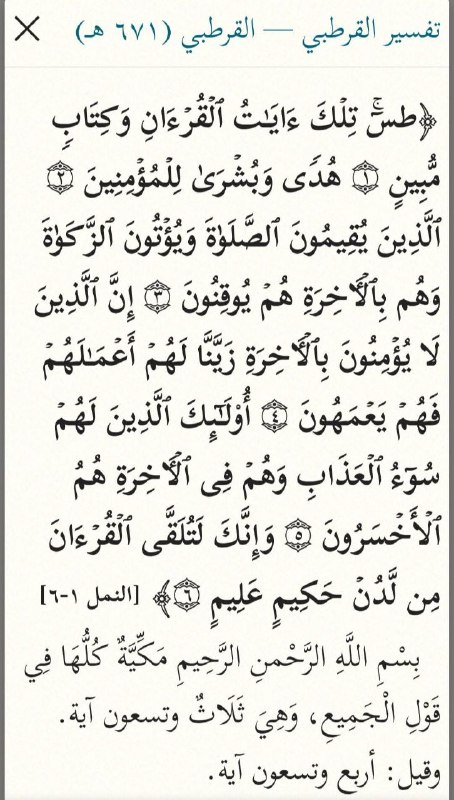 تفسير القرطبي — القرطبي (٦٧١ هـ)
﴿طسٓۚ تِلۡكَ ءَايَـٰتُ ٱلۡقُرۡءَانِ وَكِتَابࣲ
مُّبِینٍ ۝١ هُدࣰى وَبُشۡرَىٰ لِلۡمُؤۡمِنِینَ ۝٢
ٱلَّذِینَ یُقِیمُونَ ٱلصَّلَوٰةَ وَیُؤۡتُونَ ٱلزَّكَوٰةَ
وَهُم بِٱلۡـَٔاخِرَةِ هُمۡ یُوقِنُونَ ۝٣ إِنَّ ٱلَّذِینَ
لَا یُؤۡمِنُونَ بِٱلۡـَٔاخِرَةِ زَیَّنَّا لَهُمۡ أَعۡمَـٰلَهُمۡ
فَهُمۡ یَعۡمَهُونَ ۝٤ أُو۟لَـٰۤىِٕكَ ٱلَّذِینَ لَهُمۡ
سُوۤءُ ٱلۡعَذَابِ وَهُمۡ فِی ٱلۡـَٔاخِرَةِ هُمُ
ٱلۡأَخۡسَرُونَ ۝٥ وَإِنَّكَ لَتُلَقَّى ٱلۡقُرۡءَانَ
مِن لَّدُنۡ حَكِیمٍ عَلِیمٍ ۝٦﴾ [النمل ١-٦]
بِسْمِ اللَّهِ الرَّحْمنِ الرَّحِيمِ مَكِّيَّةٌ كُلُّهَا فِي
قَوْلِ الْجَمِيعِ، وَهِيَ ثَلَاثٌ وتسعون آية.
وقيل: أربع وتسعون آية.